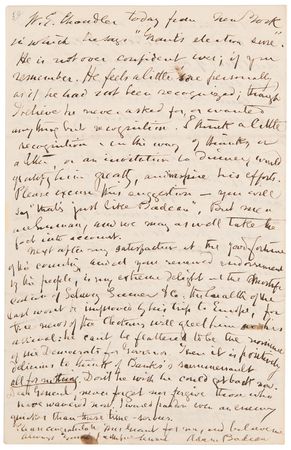 W. E. Chandler today from New York
in which he says "Grant's election sure".
He is not over confident ever, if you
remember. He feels a little sore personally
as if he had not been recognized, though
I believe he never asked for, or wanted
any thing but recognition. I think a little
recognition in the way of thanks or
a letter, or an invitation to dinner would
gratify him greatly, and inspire his efforts.
Please excuse this suggestion — you will
say "that's just like Badeau". But men
are human, and we may as well take the
fact into account.
Next after my satisfaction at the good fortune
of his country, and at your renewed endorsement
by his people, is my extreme delight at the
of Sumner & Co. the health of the
last won't be improved by his trip to Europe, for
the news of the elections will greet him on his
arrival: he can't be flattered to be the nominee
of the Democrats for Governor. Then it is positively
delicious to think of Banks's
all for nothing. Don't he wish he could get back now.
Dear General, never forget nor forgive those who
have wavered now. I would pardon even an enemy
quicker than these time-servers.
congratulate Mrs Grant for me, and believe me
always your
Adam Badeau